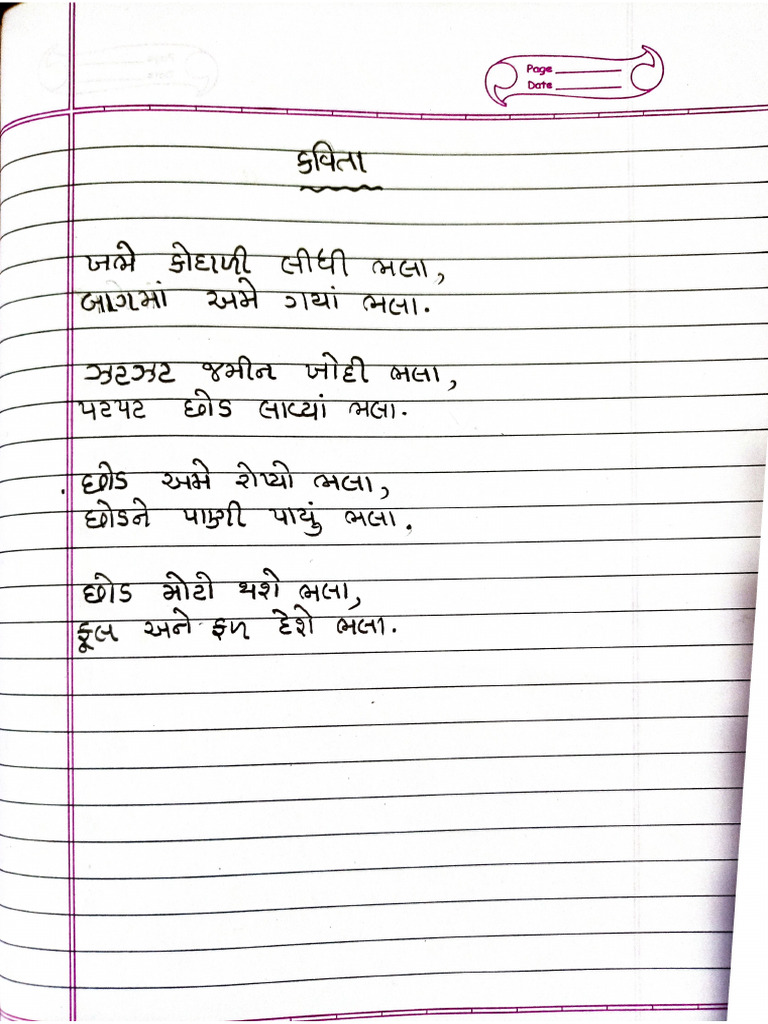 Page
Date
કવિતા
ખભે કોદાળી લીધી ભલા,
બાગમાં અમે ગયાં ભલા.
ઝટઝટ જમીન ખોદી ભલા,
પટપટ છોડ લાવ્યાં ભલા.
છોડ અમે રોપ્યો ભલા,
છોડને પાણી પાયું ભલા.
છોડ મોટો થશે ભલા,
ફૂલ અને ફળ દેશે ભલા.